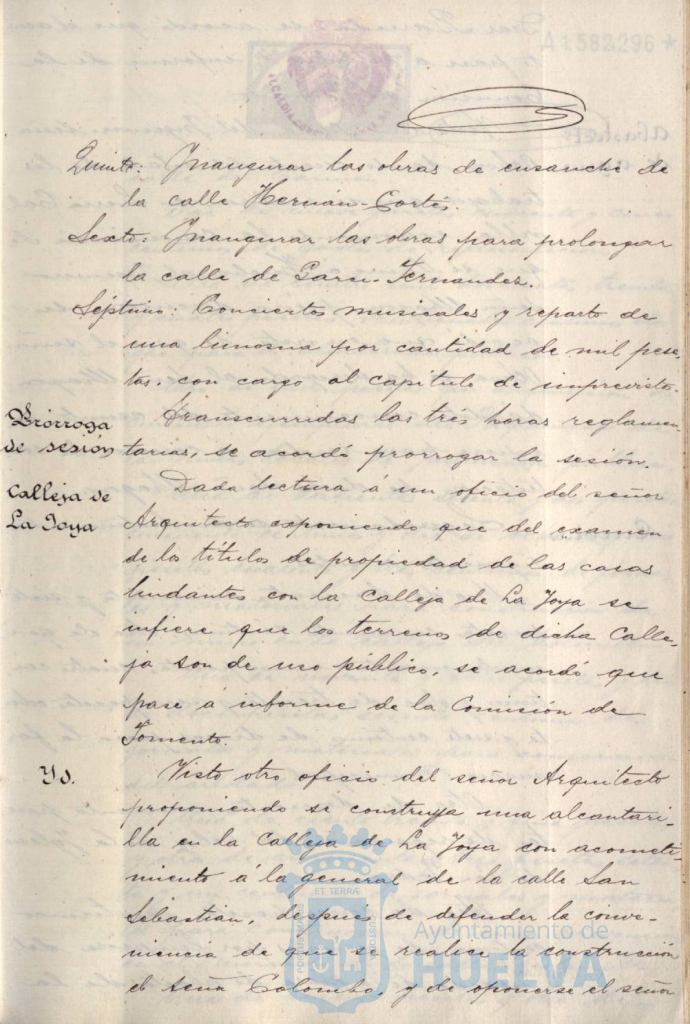 A1582296*
Quinto: Inaugurar las obras de ensanche de
la calle Hernán-Cortés.
Sexto: Inaugurar las obras para prolongar
la calle de Garci-Fernandez.
Séptimo: Conciertos musicales y reparto de
una limosna por cantidad de mil pese-
tas, con cargo al capítulo de imprevistos.
Prórroga
de sesión
Transcurridas las tres horas reglamen-
tarias, se acordó prorrogar la sesión.
Calleja de
La Joya
Dada lectura á un oficio del señor
Arquitecto exponiendo que del examen
de los títulos de propiedad de las casas
lindantes con la Calleja de La Joya se
infiere que los terrenos de dicha Calle-
ja son de uso público, se acordó que
pase á informe de la Comisión de
Fomento.
Yd.
Visto otro oficio del señor Arquitecto
proponiendo se construya una alcantari-
lla en la Calleja de La Joya con acometi-
miento á la general de la calle San
Sebastian, después de defender la conve-
niencia de que se realice la construcción
el señor Colombo, y de oponerse el señor
Ayuntamiento de
HUELVA